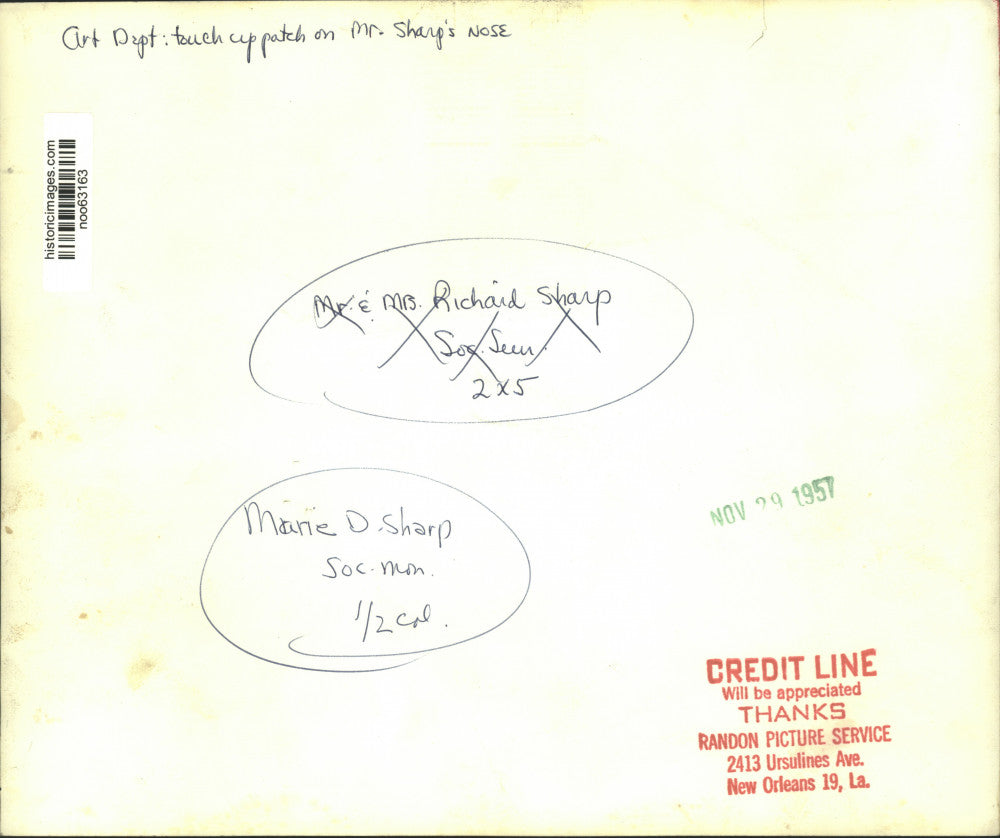 Art Dept: touch up patch on Mr. Sharp's NOSE
historicimages.com
noo63163
Mr. & Mrs. Richard Sharp
Soc. Sun.
2 x 5
Marie D. Sharp
Soc. Mon.
1/2 col.
NOV 29 1957
CREDIT LINE
Will be appreciated
THANKS
RANDON PICTURE SERVICE
2413 Ursulines Ave.
New Orleans 19, La.